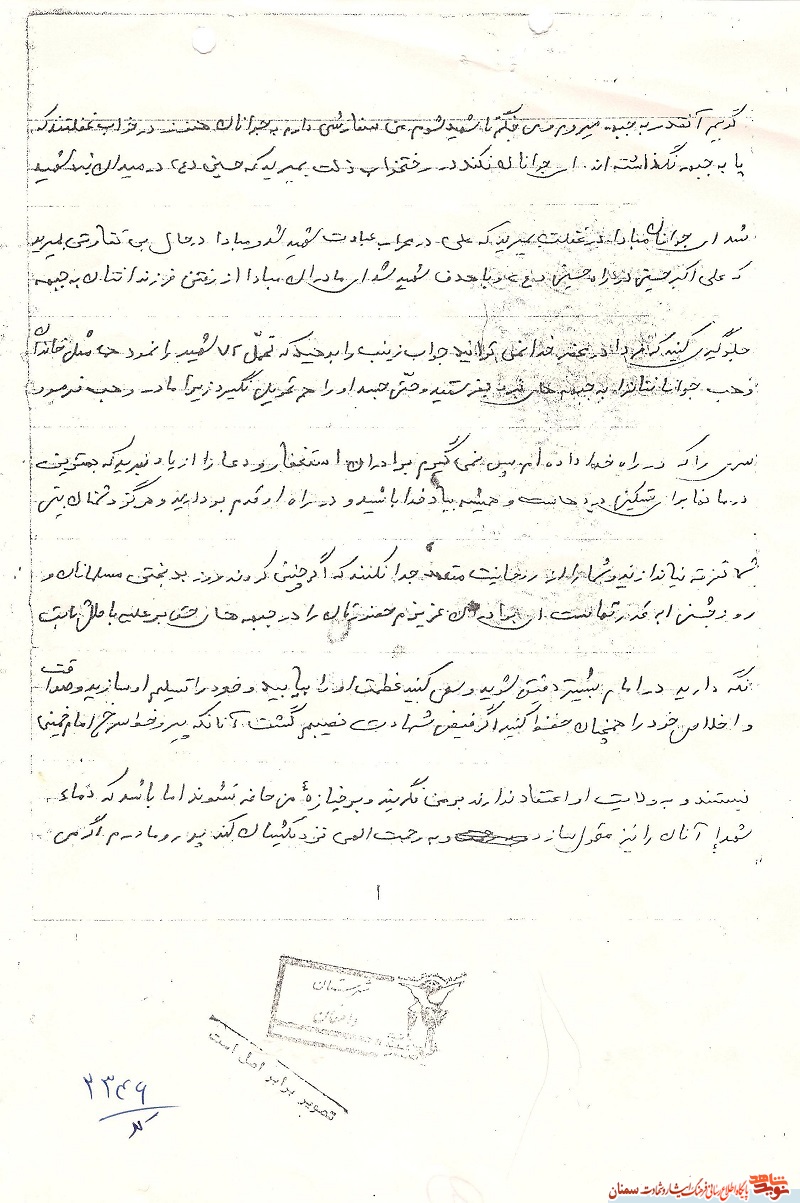 گویم آنقدر به جبهه میروم و می جنگم تا شهید شوم من سفارشی دارم به جوانان هنوز در خواب غفلتند که
پا به جبهه نگذاشته اند. ای جوانان نکند در رختخواب ذلت بمیرید که حسین (ع) در میدان نبرد شهید
شد ای جوانان مبادا در غفلت بمیرید که علی در محراب عبادت شهید شد و مبادا در حال بی تفاوتی بمیرید
که علی اکبر حسین در راه حسین (ع) و با هدف شهید شد ای مادران مبادا از رفتن فرزندانتان به جبهه
جلوگیری کنید که فردا در محضر خدا نمی توانید جواب زینب را بدهید که تحمل ۷۲ شهید را نمود همه مثل خاندان
وهب جوانانتان را به جبهه های نبرد بفرستید و حتی جسد او را هم تحویل نگیرید زیرا مادر وهب فرمود
سری را که در راه خدا داده ام پس نمی گیرم برادران استغفار و دعا را از یاد نبرید که بهترین
درمانها برای تسکین دردهاست و همیشه بیاد خدا باشید و در راه او قدم بردارید و هرگز دشمنان بین
شما تفرقه نیاندازند و شما را از روحانیت متعهد جدا نکنند که اگر چنین کردند روز بدبختی مسلمانان و
روز جشن ابرقدرتهاست ای برادران عزیزم حضورتان را در جبهه های حق بر علیه باطل ثابت
نگه دارید در امام بیشتر دقیق شوید و سعی کنید عظمت او را بیابید و خود را تسلیم او سازید و صداقت
و اخلاص خود را همچنان حفظ کنید اگر فیض شهادت نصیبم گشت آنانکه پیرو خط سرخ امام خمینی
نیستند و به ولایت او اعتقاد ندارند بر من نگریند و بر جنازهٔ من حاضر نشوند اما باشد که دماء
شهدا آنان را نیز متحول سازد و به رحمت الهی نزدیکشان کند پدر و مادرم اگر من
۱
شهرستان
دامغان
تصویر برابر اصل است
۲۳۴۶
شاهد
نوید
پایگاه اطلاع رسانی فرهنگ ایثار و شهادت سمنان